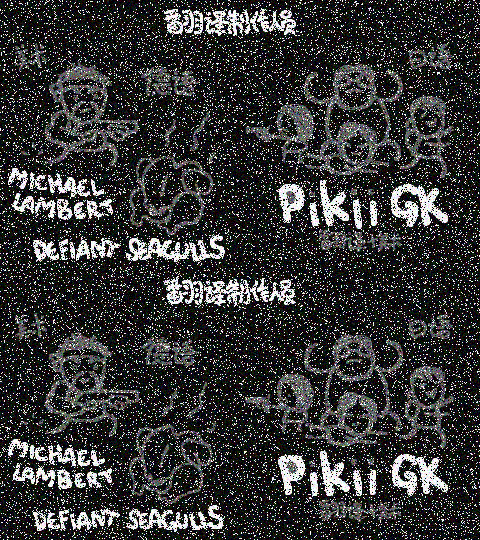 翻译制作人员
德语
日语
MICHAEL
LAMBERT
DEFIANT SEAGULLS
Pikii GK
翻译制作人员
德语
日语
MICHAEL
LAMBERT
DEFIANT SEAGULLS
Pikii GK